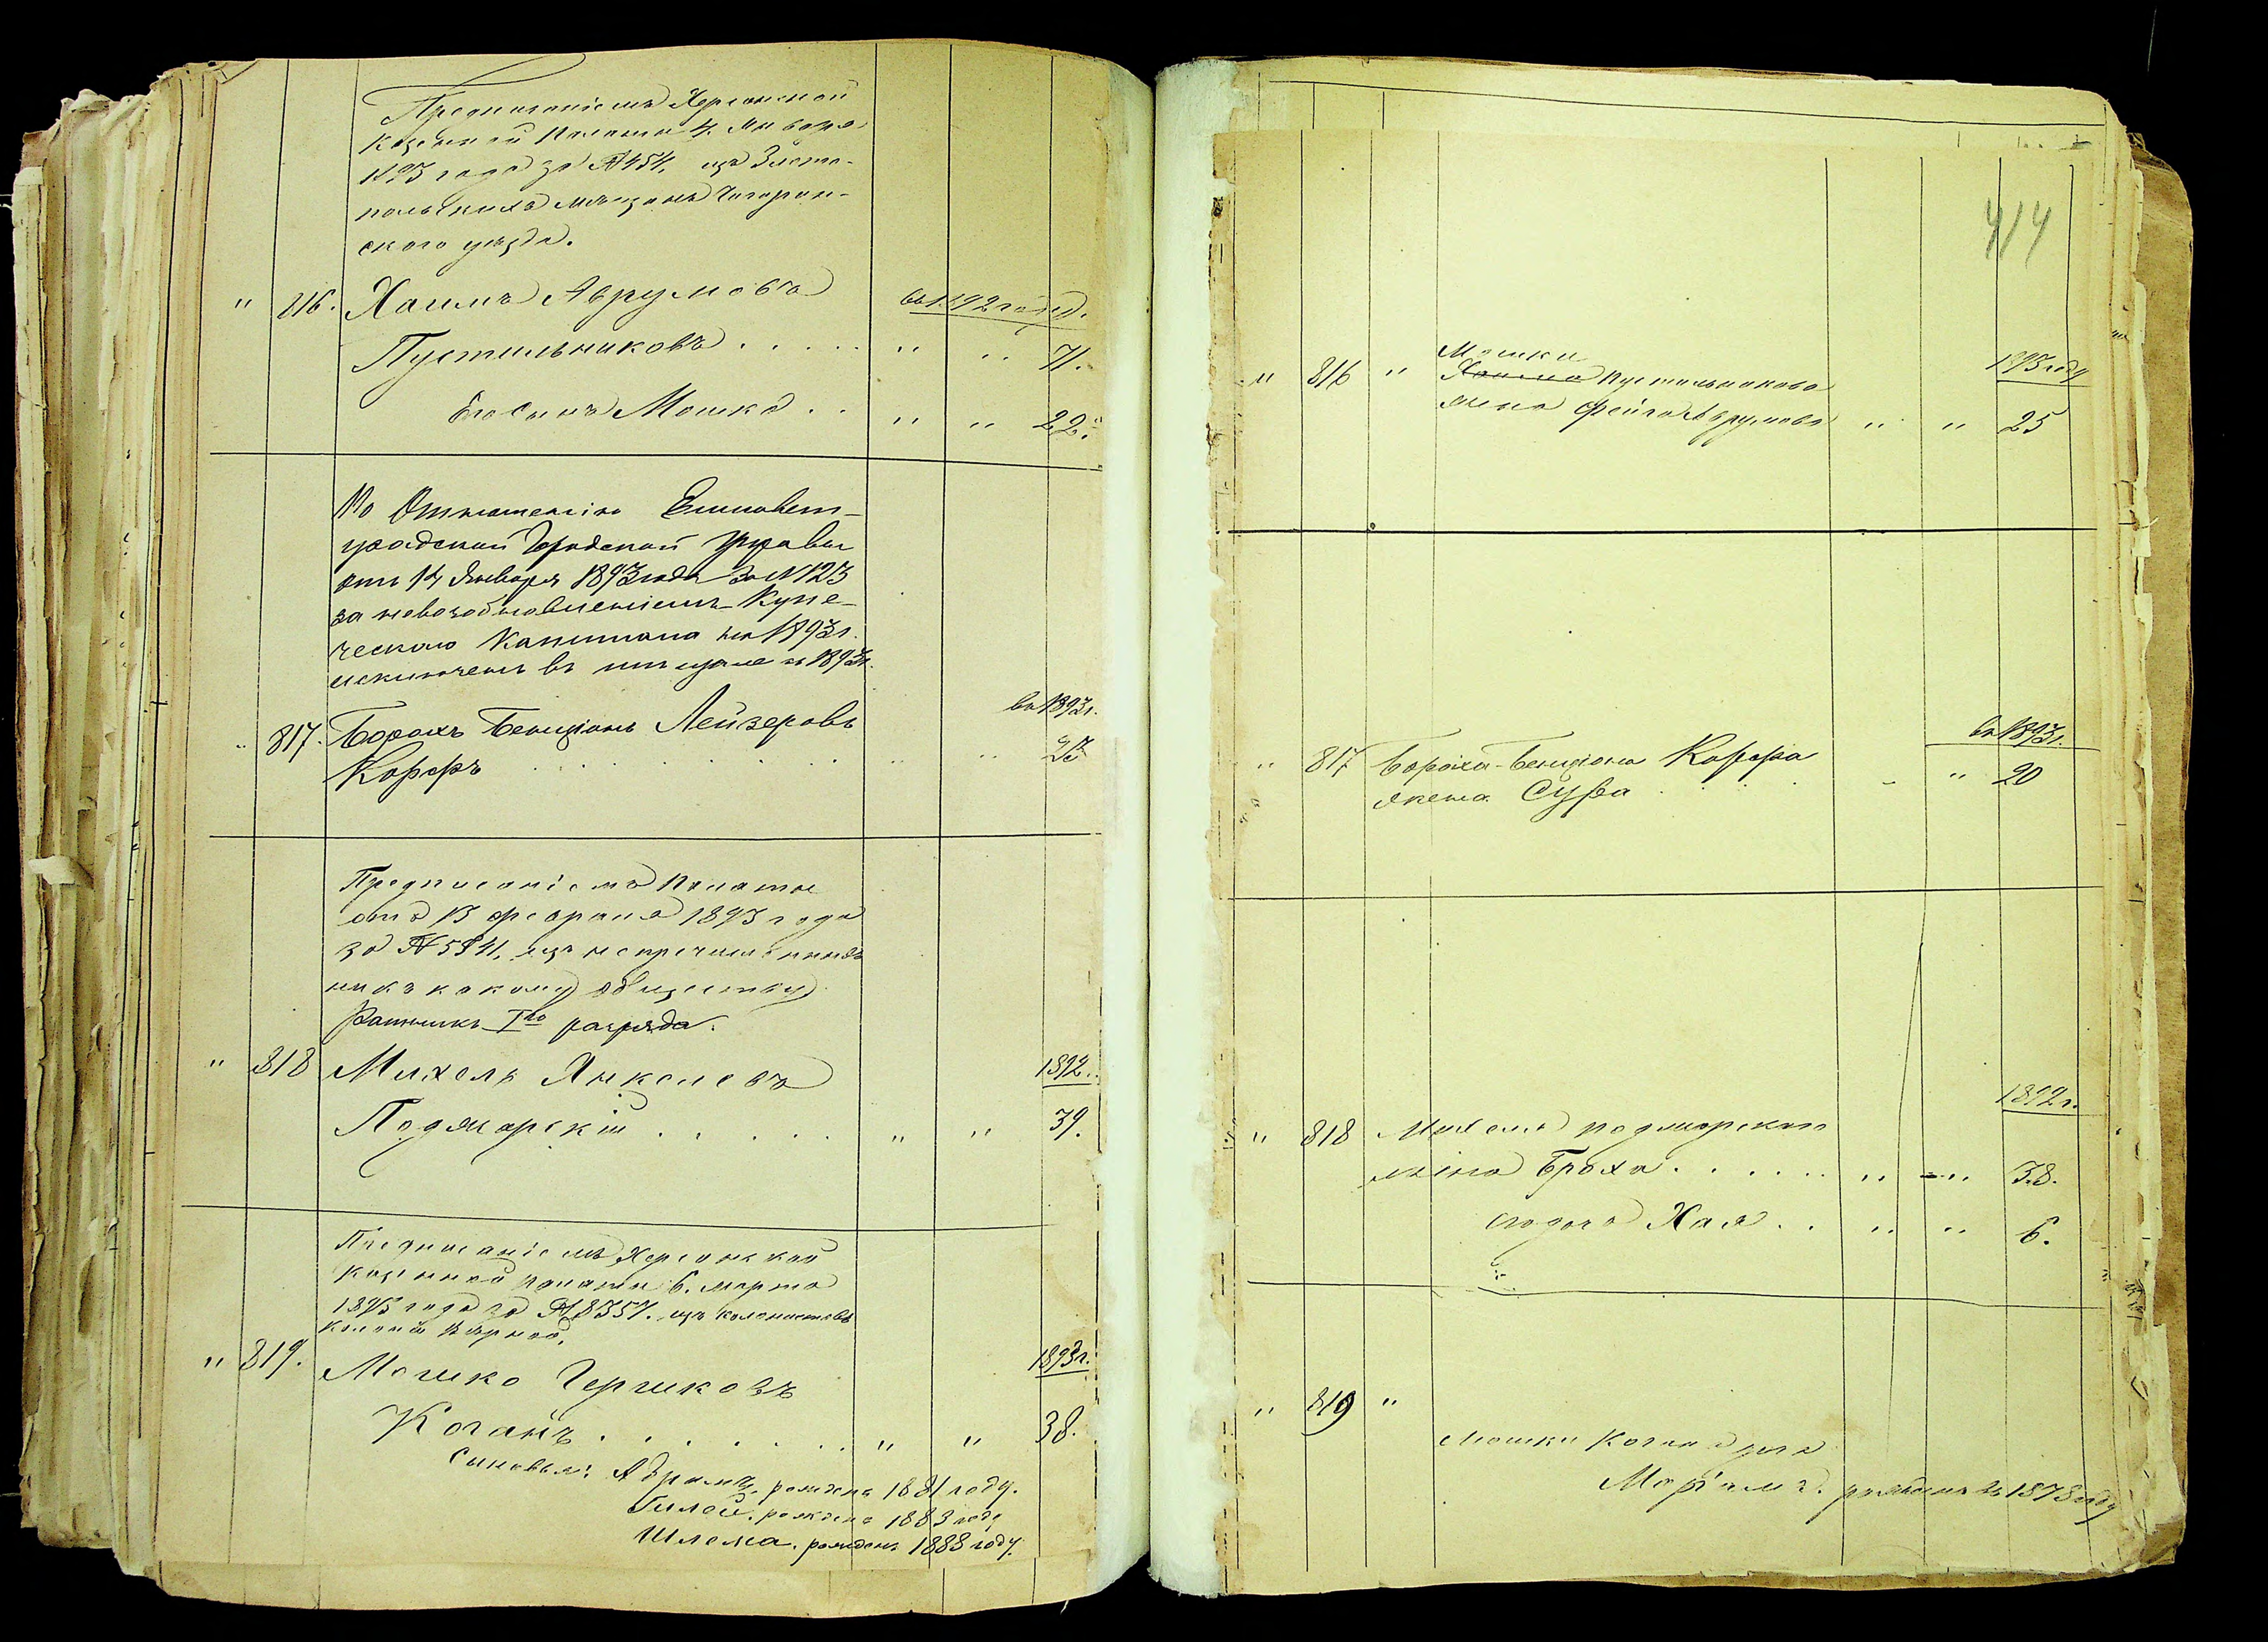 Предписаніемъ Херсонской
Казенной Палаты 4. Января
1893 года за № 454, изъ Злато-
польскихъ мѣщанъ Чигирин-
скаго уѣзда.
" 816. Хаимъ Аврумовъ въ 1892 году.
Пустильниковъ . . . . . " " 71.
Его Сынъ Мошко . . " " 22.
По Отношенію Елисавет-
градской Городской Управы
отъ 14 Января 1893 года за № 123
за невозобновленіемъ Купе-
ческаго Капитала на 1893 г.
исключенъ въ мѣщане въ 1893 г.
" 817. Борохъ Бенціонъ Лейзеровъ въ 1893 г.
Корфъ . . . . . . . " " 23
Предписаніемъ Палаты
отъ 13 февраля 1893 года
за № 5841, изъ непричисленныхъ
ни къ какому обществу
Ратникъ Iго разряда.
" 818 Михель Янкелевъ 1892.
Подмарскій . . . . . " " 39.
Предписаніемъ Херсонской
Казенной палаты 6. марта
1893 года за № 8357. изъ колонистовъ
Колоніи
" 819. Мошко Гершковъ 1893 г.
Коганъ . . . . . . . " " 38.
Сыновья: Абрамъ, рожденъ 1881 году.
рожденъ 1883 году
Шлема. рожденъ 1888 году.
414
" 816 " Мошки 1893 году
Хаима Пустильникова
жена Фейга Аврумова " " 25
" 817 Бороха-Бенціона Корфа въ 1893 г.
жена Сура . . . . " " 20
1892 г.
" 818 Михеля Подмарскаго
жена Броха . . . . . . " " 38.
его дочь Хая . . " " 6.
" 819 "
Мошки Когана дочь
Маріамъ. рожденъ въ 1878 году